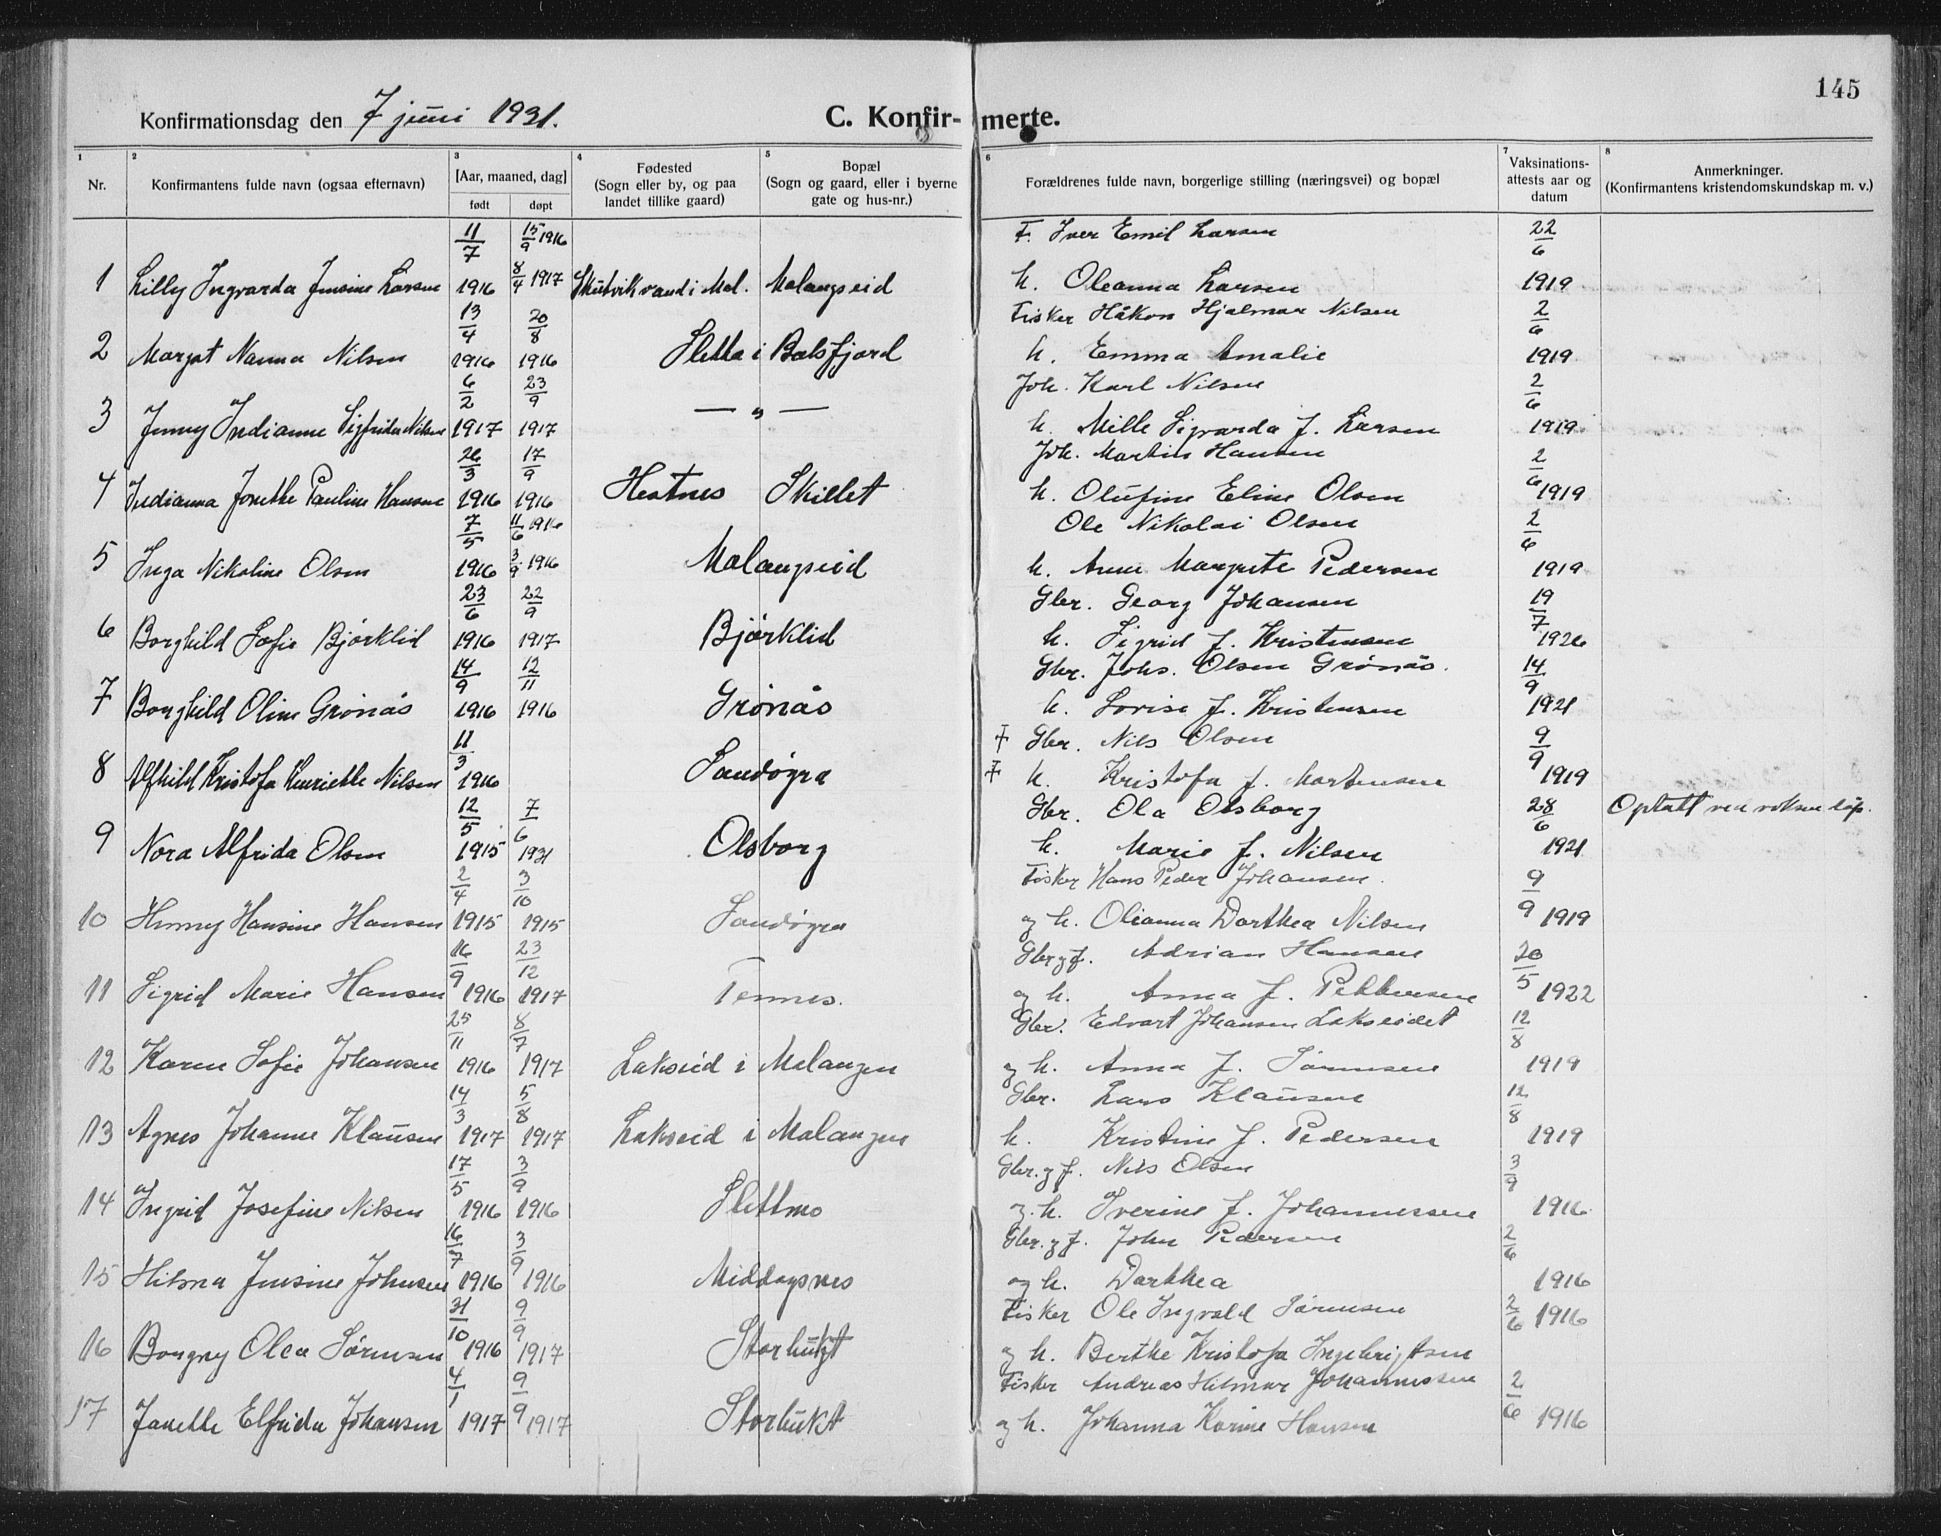 145
Konfirmationsdag den 7 juni 1931.
C. Konfir- merte.
1 2 3 4 5 6 7 8
Nr.
Konfirmantens fulde navn (ogsaa efternavn)
[Aar, maaned, dag]
født døpt
Fødested
(Sogn eller by, og paa
landet tillike gaard)
Bopæl
(Sogn og gaard, eller i byerne
gate og hus-nr.)
Forældrenes fulde navn, borgerlige stilling (næringsvei) og bopæl
Vaksinations-
attests aar og
datum
Anmerkninger.
(Konfirmantens kristendomskundskap m. v.)
11/7 15/9 1916 F. Iver Emil Larsen 22/6
1 Lilly Ingvarda Jensine Larsen 1916 8/4 1917 Skutvikvand i Mal. Malangseid h. Oleanna Larsen 1919
13/4 20/8 Fisker Håkon Hjalmar Nilsen 2/6
2 Margot Nanna Nilsen 1916 1916 Sletta i Balsfjord h. Emma Amalie 1919
6/2 23/9 Joh. Karl Nilsen 2/6
3 Jenny Indianne Sigfrida Nilsen 1917 1917 — " — h. Mille Sigvarda f. Larsen 1919
26/3 17/9 Joh. Martin Hansen 2/6
4 Indianna Jonette Pauline Hansen 1916 1916 Hestnes Skillet h. Olufine Eline Olsen 1919
7/5 11/6 1916 Ole Nikolai Olsen 2/6
5 Inga Nikoline Olsen 1916 3/9 1916 Malangseid h. Anne Margrete Pedersen 1919
23/6 22/9 Gbr. Georg Johansen 19/7
6 Borghild Sofie Bjørklid 1916 1917 Bjørklid h. Sigrid f. Kristensen 1926
14/9 12/11 Gbr. Johs. Olsen Grønås. 14/9
7 Borghild Oline Grønås 1916 1916 Grønås h. Lovise f. Kristensen 1921
11/3 ‡ Gbr. Nils Olsen 9/9
8 Alfhild Kristofa Henriette Nilsen 1916 Sandøyra ‡ h. Kristofa f. Mortensen 1919
12/5 7/6 Gbr. Ola Olsborg 28/6 Optatt ved voksen dåp.
9 Nora Alfrida Olsen 1915 1931 Olsborg h. Marie f. Nilsen 1921
2/4 3/10 Fisker Hans Peder Johansen. 9/9
10 Hansine Hansen 1915 1915 Sandøyra og h. Olianna Dorthea Nilsen 1919
16/9 23/12 Gbr og f. Adrian Hansen 20/5
11 Sigrid Marie Hansen 1916 1917 Tennes. og h. Anna f. Pettersen 1922
25/11 8/7 Gbr. Edvart Johansen Lakseidet 12/8
12 Karen Sofie Johansen 1916 1917 Lakseid i Malangen og h. Anna f. Sørensen 1919
14/3 5/8 Gbr. Lars Klausen 12/8
13 Agnes Johanne Klausen 1917 1917 Lakseid i Malangen h. Kristine f. Pedersen 1919
17/5 3/9 Gbr. og f. Nils Olsen 3/9
14 Ingrid Josefine Nilsen 1916 1916 Slettmo og h. Iverine f. Johannessen 1916
16/7 3/9 Gbr. og f. John Pedersen 2/6
15 Hilma Jensine Johnsen 1916 1916 Middagsnes og h. Dorthea 1916
31/10 9/9 Fisker Ole Ingvald Sørensen 2/6 1916
16 Borgny Olea Sørensen 1916 1917 Storbukt og h. Berthe Kristofa Ingebrigtsen
4/1 9/9 Fisker Andreas Hilmar Johannessen 2/6
17 Janette Elfrida Johansen 1917 1917 Storbukt og h. Johanna Karine Hansen 1916